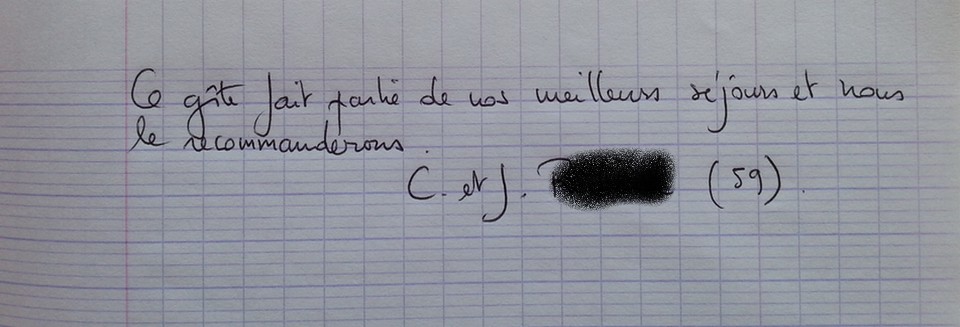 Ce gîte fait partie de nos meilleurs séjours et nous
le recommanderons.
C. et J. (59).